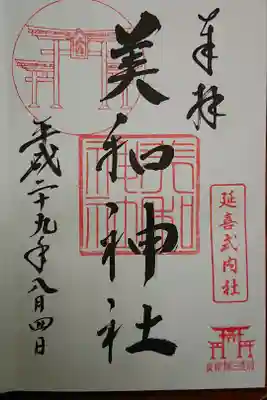 奉拝
延喜式内社
美和神社
平成二十九年八月四日